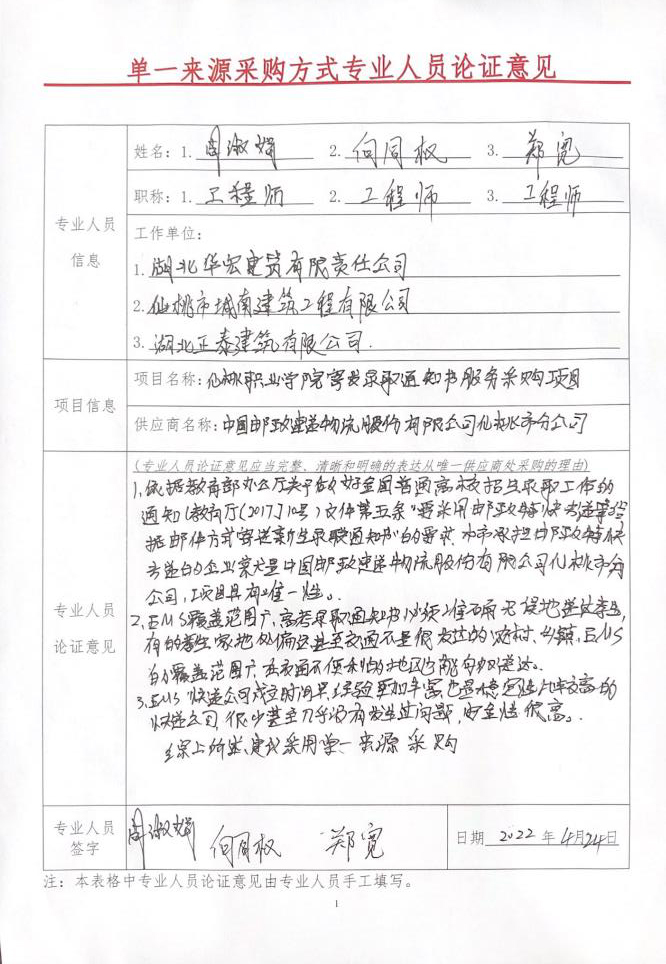 单一来源采购方式专业人员论证意见
专业人员
信息
姓名：1. 周淑娟 2. 向同权 3. 郑宽
职称：1. 工程师 2. 工程师 3. 工程师
工作单位：
1. 湖北华宏建贸有限责任公司
2. 仙桃市城南建筑工程有限公司
3. 湖北正泰建筑有限公司.
项目信息
项目名称：仙桃职业学院寄发录取通知书服务采购项目
供应商名称：中国邮政速递物流股份有限公司仙桃市分公司
专业人员
论证意见
（专业人员论证意见应当完整、清晰和明确的表达从唯一供应商处采购的理由）
1、依据教育部办公厅关于做好全国普通高校招生录取工作的
通知（教育厅〔2017〕10号）文件第五条“要采用邮政特快专递等
邮件方式寄送新生录取通知书”的要求，本市承担邮政特快
专递的企业只是中国邮政速递物流股份有限公司仙桃市分
公司，项目具有唯一性。
2、EMS覆盖范围广，高考录取通知书必须准确无误地送达考生，
有的考生家地处偏远甚至交通不是很发达的农村、乡镇，EMS
的覆盖范围广，在交通不便利的地区也能向权送达。
3、EMS快递公司成立时间早，经验更加丰富也是稳定性比较高的
快递公司，很少甚至几乎没有发生过问题，安全性很高。
综上所述，建议采用单一来源采购
专业人员
签字
周淑娟 向同权 郑宽
日期 2022年4月24日
注：本表格中专业人员论证意见由专业人员手工填写。
1